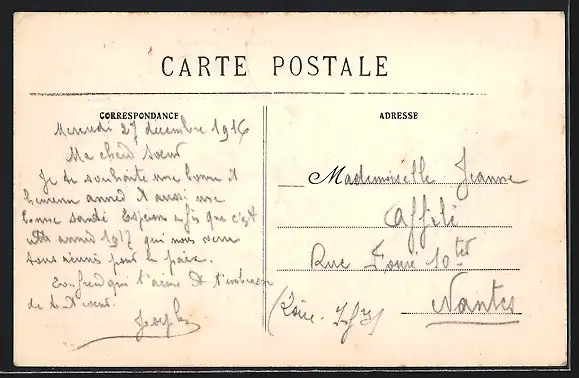 CARTE POSTALE
CORRESPONDANCE
ADRESSE
Mercredi 27 decembre 1916
Ma cher sœur
Je te souhaite une bonne et
heureuse anneé et aussi une
bonne santé Esperon que c'est
anneé 1917 qui nous verra
tous réunis pour la paix.
Ton frend qui t'aime et t'embrasse
de tout coeur.
Joseph
Mademoiselle Jeanne
Rue 10 ter
Nantes
(Loire-Infre)